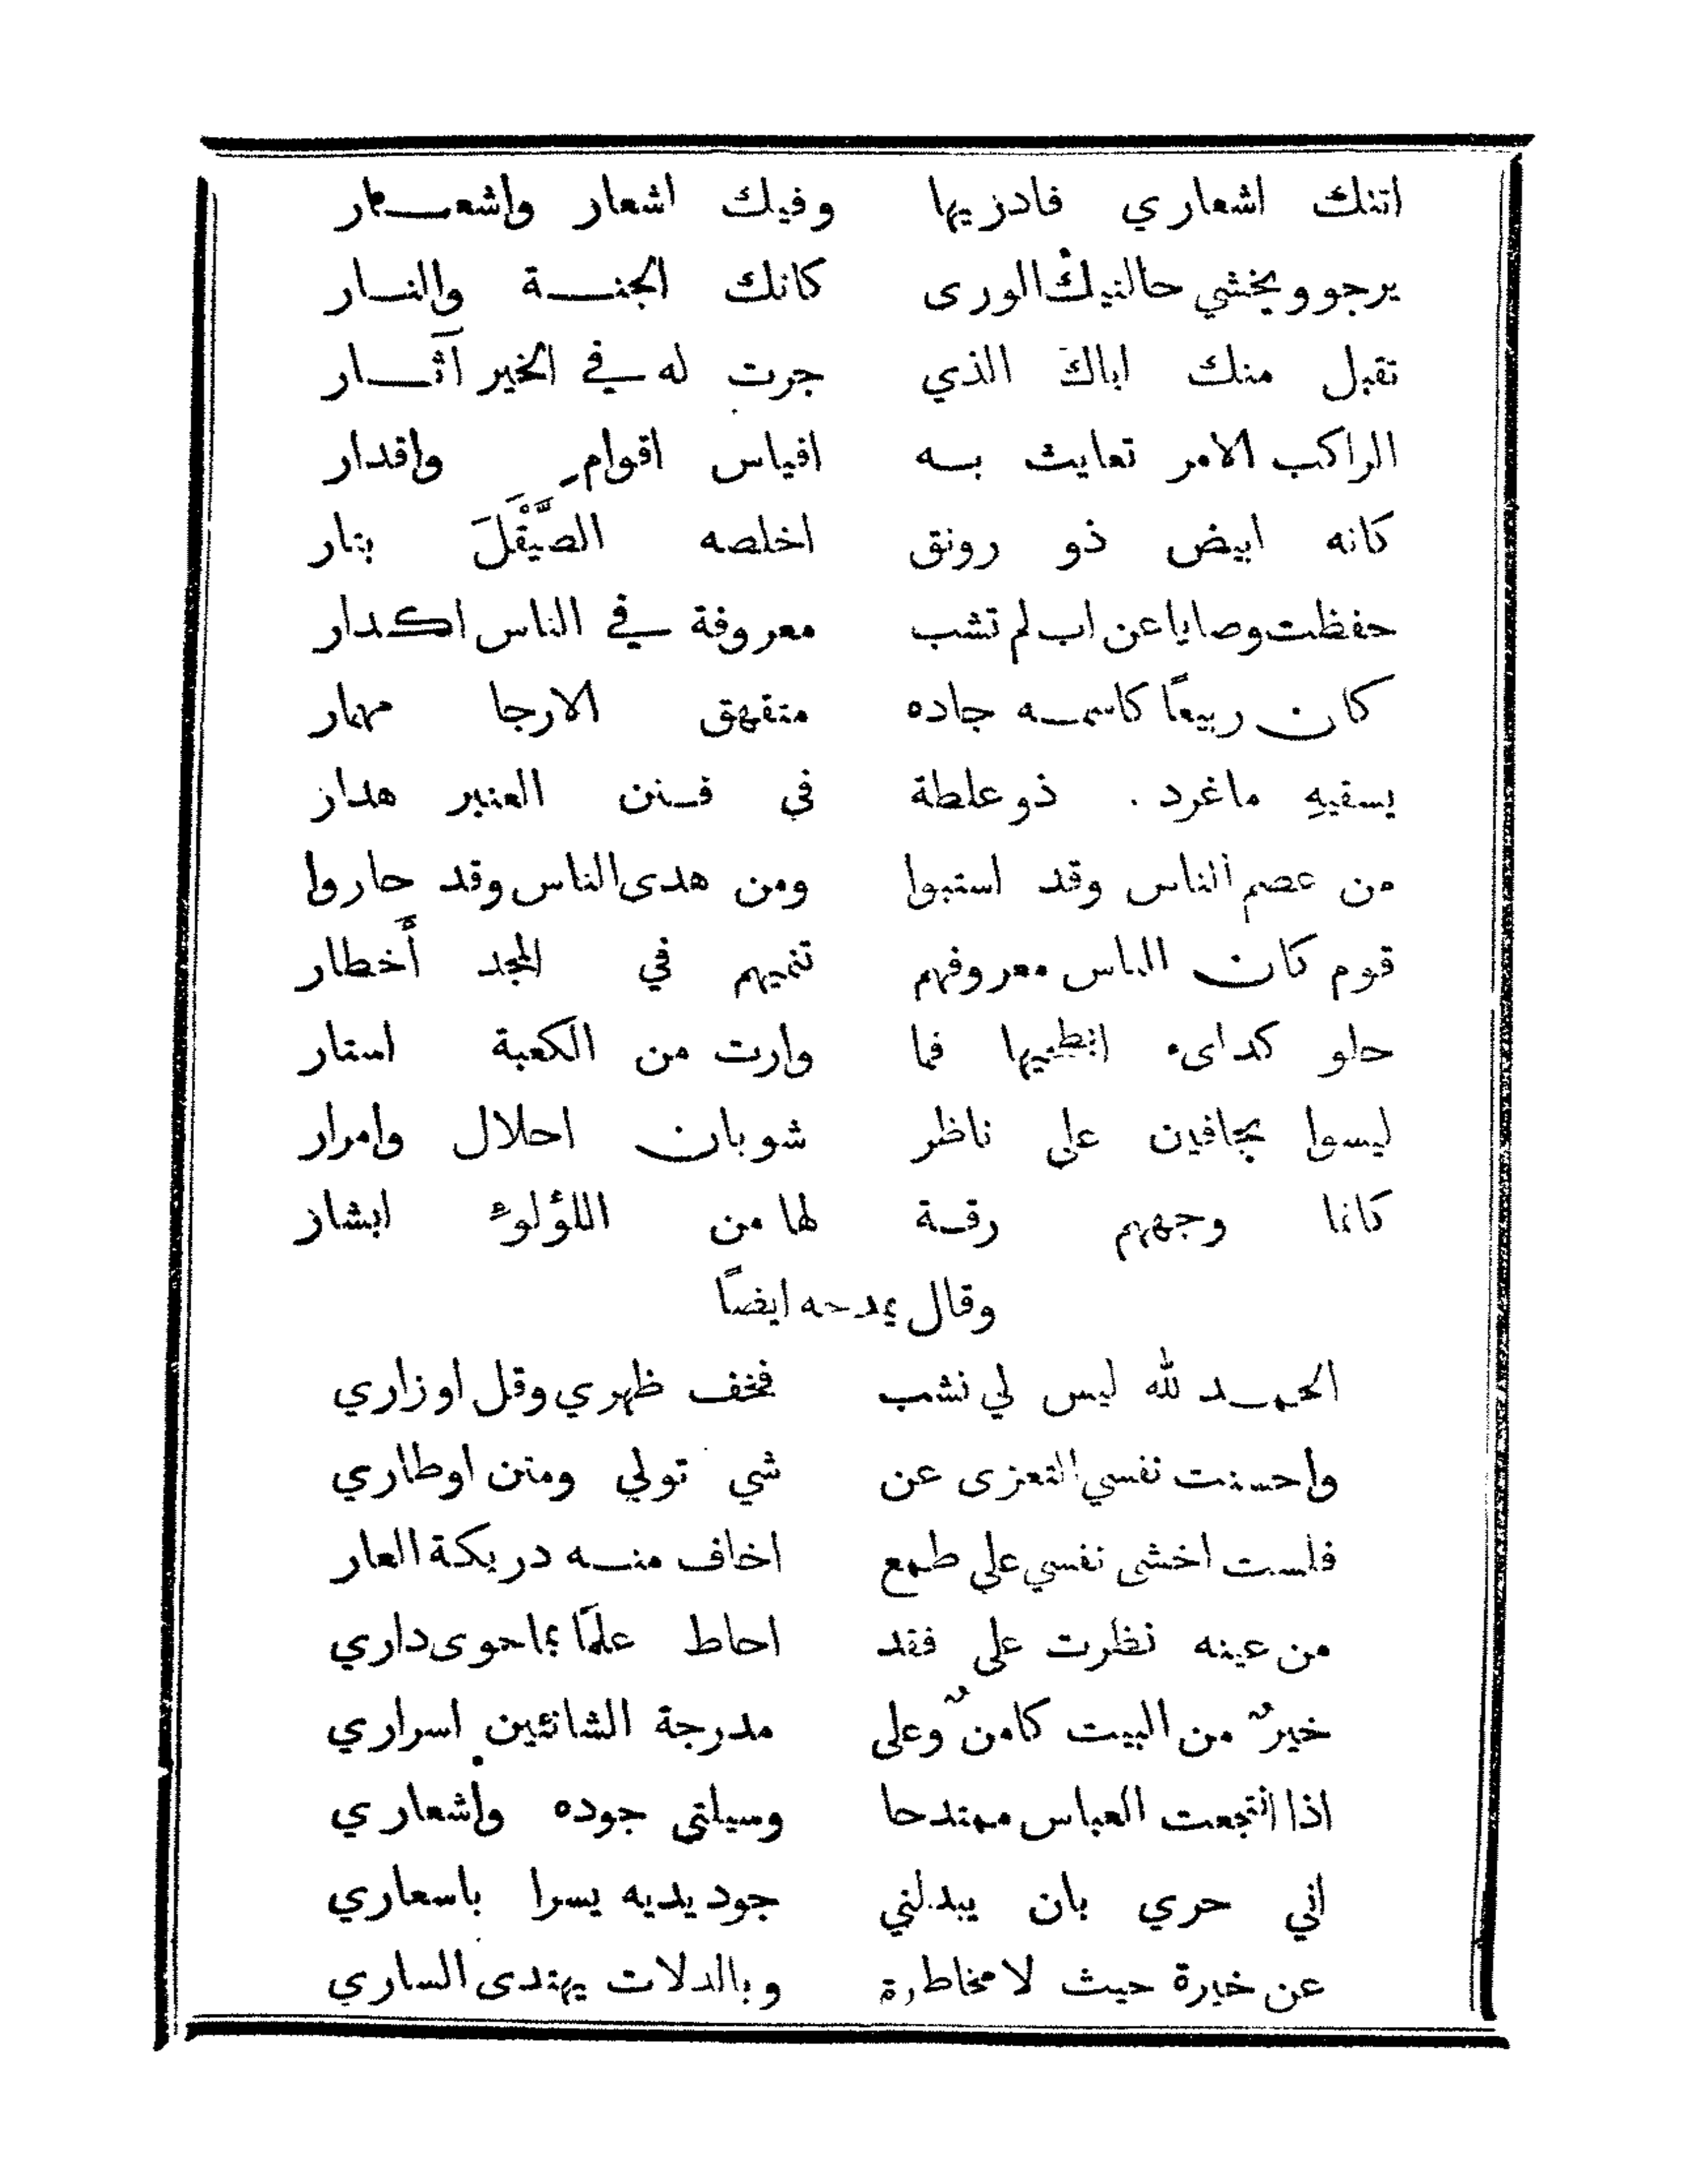 اتتك اشعاري فادزيها وفيك اشعار واشعار
يرجو ويخشي حالتيك الورى كانك الجنة والنار
تقبل منك اباك الذي جرت له في الخير آثار
الراكب الامر تعايث به افياس اقوام واقدار
كانه ابيض ذو رونق اخلصه الصَّيْقَلَ بتار
حفظت وصايا عن اب لم تشب معروفة في الناس اكدار
كان ربيعًا كاسمه جاده متفهق الارجا مهمار
يسقيهِ ماغرد ذو علطة في فنن العنبر هدار
من عصم الناس وقد استبوا ومن هدى الناس وقد حاروا
قوم كان الناس معروفهم تنميهم في المجد أخطار
حلو كداىء ابطحيها فما وارت من الكعبة استار
ليسوا بجافين على ناظر شوبان احلال وامرار
كانما وجههم رقة لها من اللؤلوء ابشار
وقال يمدحه ايضًا
الحمد لله ليس لي نشب فخف ظهري وقل اوزاري
واحسنت نفسي التعزى عن شي تولي ومتن اوطاري
فلست اخشى نفسي على طمع اخاف منه دريكة العار
من عينه نظرت على فقد احاط علمًا بما حوى داري
خيرٌ من البيت كامنٌ وعلى مدرجة الشانئين اسراري
اذا انتجعت العباس ممتدحا وسيلتي جوده واشعاري
اني حري بان يبدلني جود يديه يسرا باسعاري
عن خبرة حيث لا مخاطرة وبالدلات يهتدى الساري